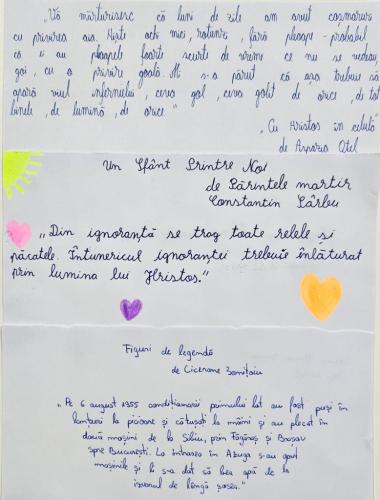 „Vă mărturisesc că luni de zile am avut coșmaruri
cu privirea aia. Niște ochi mici, rotunzi, fără pleoape - probabil
că îi au pleoapele foarte scurte de vreme ce nu se vedeau,
goi, cu o privire goală. Mi s-a părut că așa trebuie să
apară viul infernului, ceva gol, ceva golit de orice, de tot
binele, de lumină, de orice."
„Cu Hristos în celulă"
de Aspazia Oțel
Un Sfânt Printre Noi
de Părintele martir
Constantin Sârbu
„Din ignoranță se trag toate relele și
păcatele. Întunericul ignoranței trebuie înlăturat
prin lumina lui Hristos."
Figuri de legendă
de Cicerone Ionițoiu
„Pe 6 august 1955 condițianarii primului lot au fost puși în
lanțuri la picioare și cătușați la mâini și au plecat în
două mașini de la Sibiu, prin Făgăraș și Brașov
spre București. La intrarea în Azuga s-au oprit
mașinile și li s-a dat să bea apă de la
izvorul de lângă șosea."